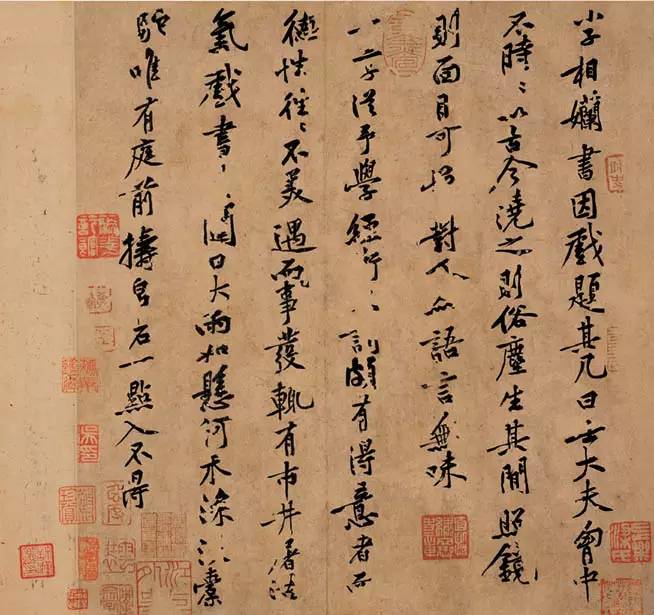 小子相孏書因戲題其几曰士大夫胷中
不時〻以古今澆之則俗塵生其間照鏡
則面目可憎對人亦語言無味
一二子從予學經訓頗有得意者而
德性往〻不美遇事發輒有市井屠沽
氣戲書曰大雨如懸河水深沒橐
駝唯有庭前擣帛石一點入不得